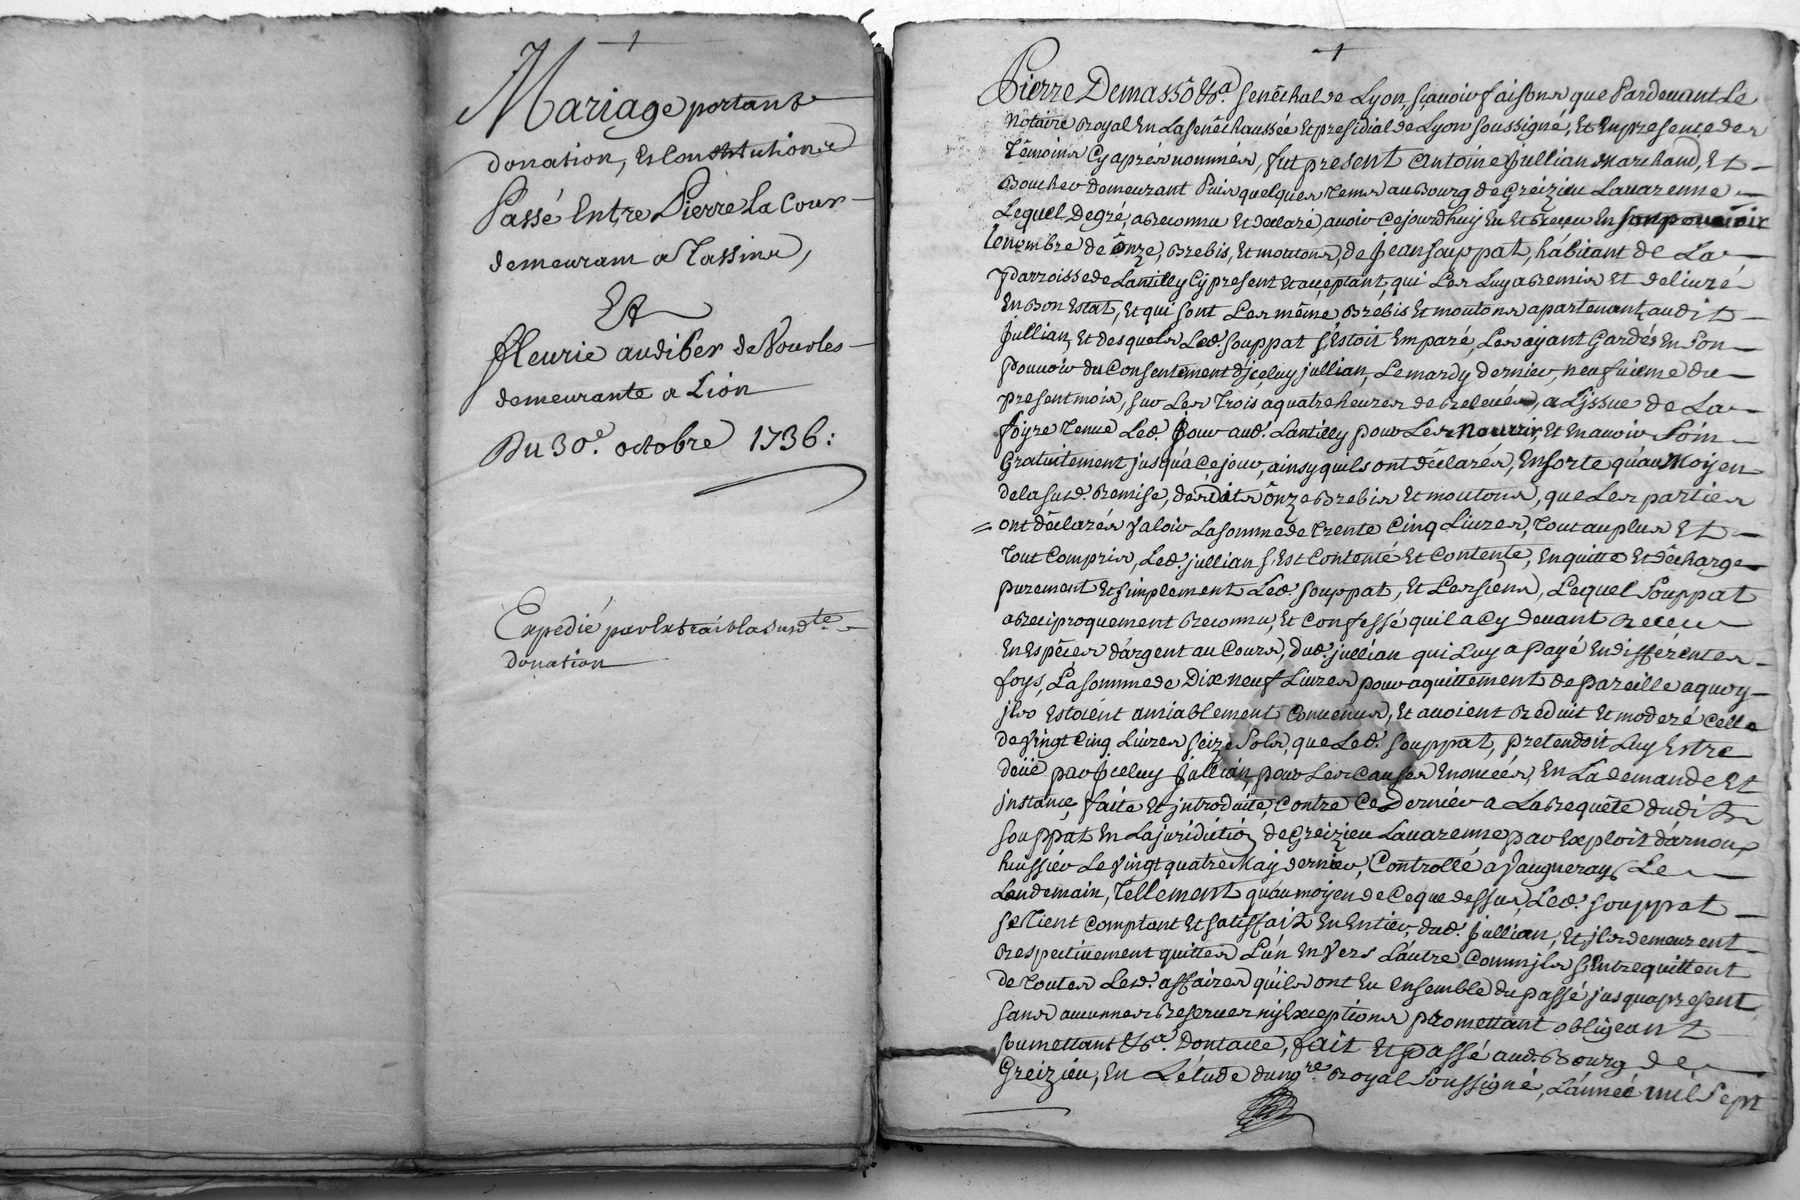 Mariage portant
donation, Et Constitution &
Passé Entre Pierre La Cour
demeurant a Tassins,
Et
fleurie audiber de Vourles
demeurante a Lion
Du 30e. octobre 1736:
Expedié par Extrait lasusdte
donation
Pierre Demasso &a. Senêchal de Lyon, sçavoir faisons que Pardevant Le
Notaire Royal En La Senêchaussée Et presidial de Lyon soussigné, Et En presence des
Têmoins Cy aprés nommés, fut present antoine Jullian Marchand, Et
Boucher demeurant Puis quelques tems au Bourg de Greizieu Lavarenne
Lequel de gré, a Reconnu Et declaré, avoir Cejourdhuy Eu Et Reçeu En son pouvoir
le nombre de ônze, Brebis, Et moutons, de Jean Souppat, hábitant de La
Parroisse de Lantilly Cy present Et acçeptant, qui Les Luy a Remis Et delivré
En Bon Estat, Et qui sont Les même Brébis Et moutons apartenant, audit
Jullian, Et desquels Led. Souppat s'Estoit Emparé, Les ayant Gardés En son
Pouvoir du Consentement d'jceluy jullian, Le mardy dernier, neufvieme du
present mois, sur Les Trois a quatre heures de Relevée, a L'jssue de La
foyre Tenue Led. Jour aud. Lantilly pour Les Nourrir, Et En avoir soin
Gratuitement jusqu'a Ce jour, ainsy quils ont déclarés, En sorte qu'au Moyen
de la susd. Remise, desdits ônze Brebis Et moutons, que Les parties
ont déclarés Valoir La somme de Trente Cinq Livres, Tout au plus Et
Tout Compris, Led. jullian s'Est Contenté Et Contente, En quitte Et décharge
purement Et simplement Led. Souppat, Et Les siens, Lequel Souppat
a Reciproquement Reconnu, Et Confessé quil a Cy devant Receu
En Espéces d'árgent au Cours, dud. jullian qui Luy a Payé En differentes
foys, La somme de Dix neuf Livres pour aquittement de pareille a quoy
jls Estoient amiablement Convenus, Et avoient Reduit Et moderé Celle
de Vingt Cinq Livres seize Sols, que Led. Souppat, pretendoit Luy Estre
deüe par Jceluy Jullian, pour Les Causes Enoncées, En La demande Et
jnstance, faite Et jntroduite, Contre Ce Dernier a La Requête dudit
Souppat En La juridiction de Greizieu Lavarenne par Exploit d'arnoux
huissier Le Vingt quatre May dernier, Controllé a Vaugneray Le
Lendemain, Tellement qu'au moyen de Ce que dessus, Led. Souppat
se Tient Comptant Et satisfait En Entier, dud. Jullian, Et jls demeurent
Respectivement quittes L'ún En Vers L'autre Comm'jls s'Entrequittent
de Toutes Lesd. affaires quils ont Eu Ensemble du passé jusqu'apresent
sans aucunnes Reserves ny Exceptions promettant obligeant
soumettant &a. Dont acte, fait Et passé aud. Bourg de
Greizieu, En L'étude du nre. Royal Soussigné, L'année mil Sept